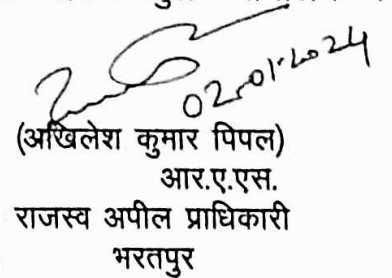 02.01.2024
(अखिलेश कुमार पिपल)
आर.ए.एस.
राजस्व अपील प्राधिकारी
भरतपुर